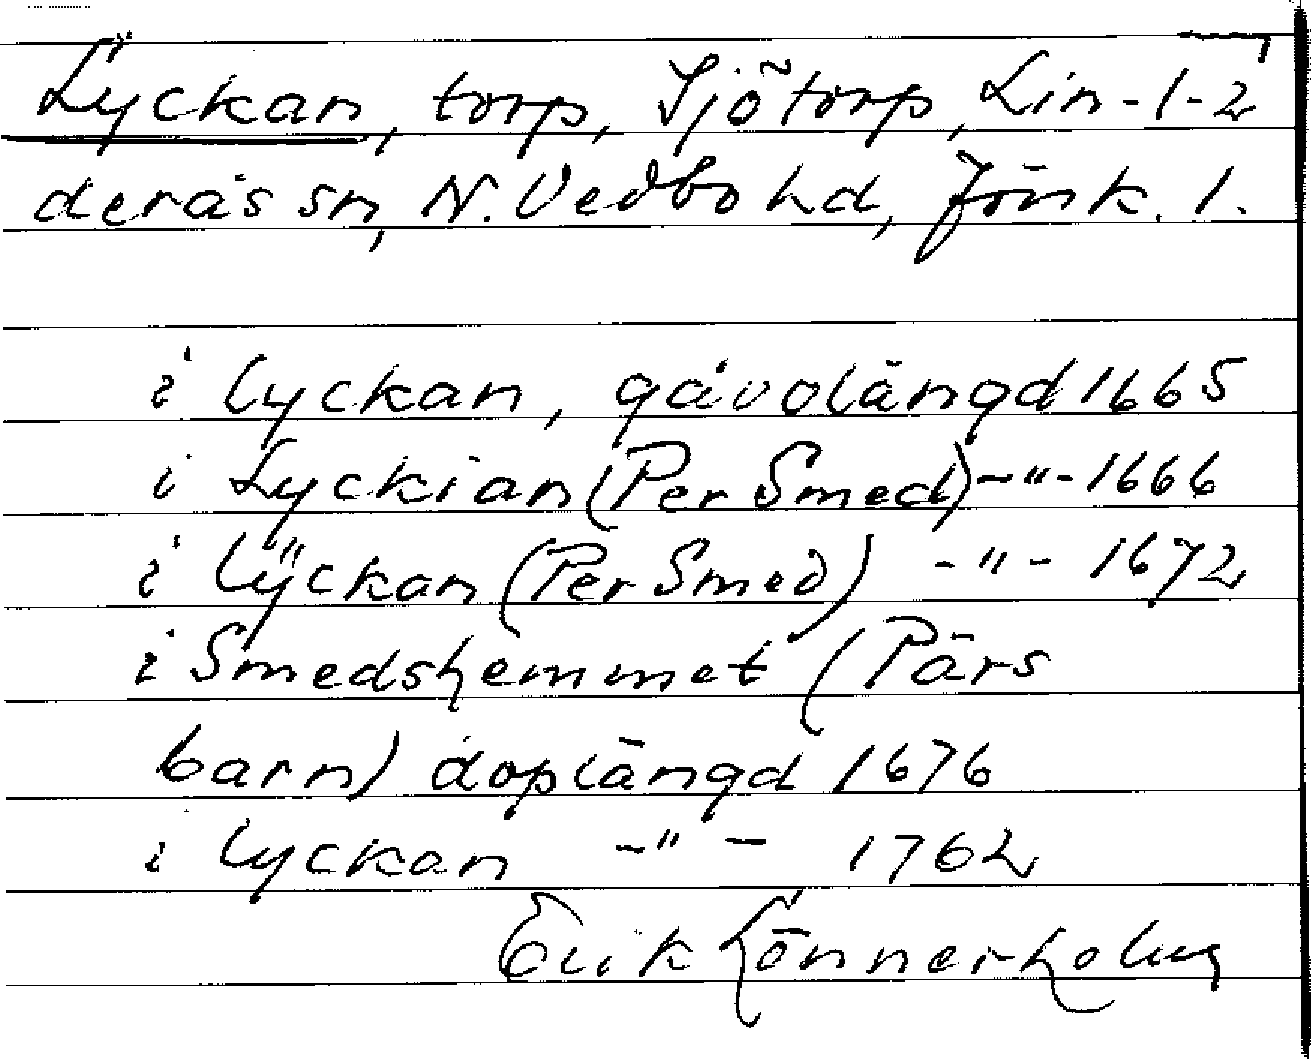 Lÿckan, torp, Sjötorp, Lin-1-2
derås sn, N. Vedbo hd, Jönk. l.
i lyckan, gåvolängd 1665
i Lyckian (Per Smed) -"- 1666
i lÿckan (Per Smed) -"- 1672
i Smedshemmet (Pärs
barn) doplängd 1676
i lyckan -"- 1762
Erik Lönnerholm